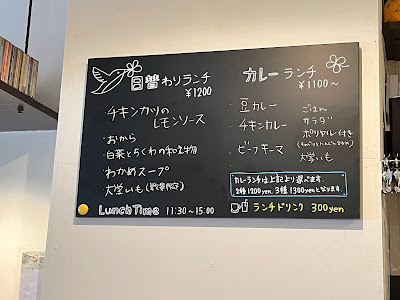 日替わりランチ
¥1200
チキンカツの
レモンソース
・おから
・白菜とちくわの和え物
わかめスープ
大学いも
Lunch Time 11:30〜15:00
カレーランチ
¥1100〜
・豆カレー
・チキンカレー
・ビーフキーマ
ごはん
サラダ
ポリヤル付き
大学いも
カレーランチは上記より選べます。
2種1200yen. 3種1300yenとなります。
ランチドリンク 300yen